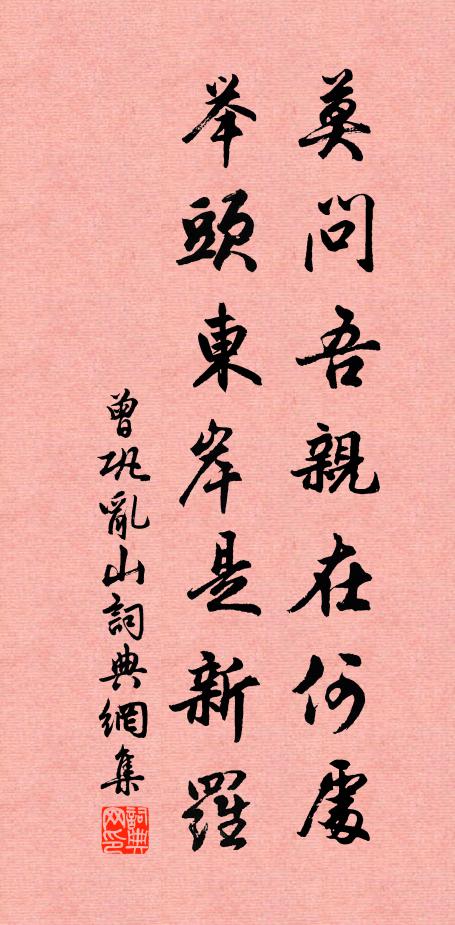 莫問吾親在何處
举頭東岸是新羅
曾巩亂山詞典網集
詞典网印